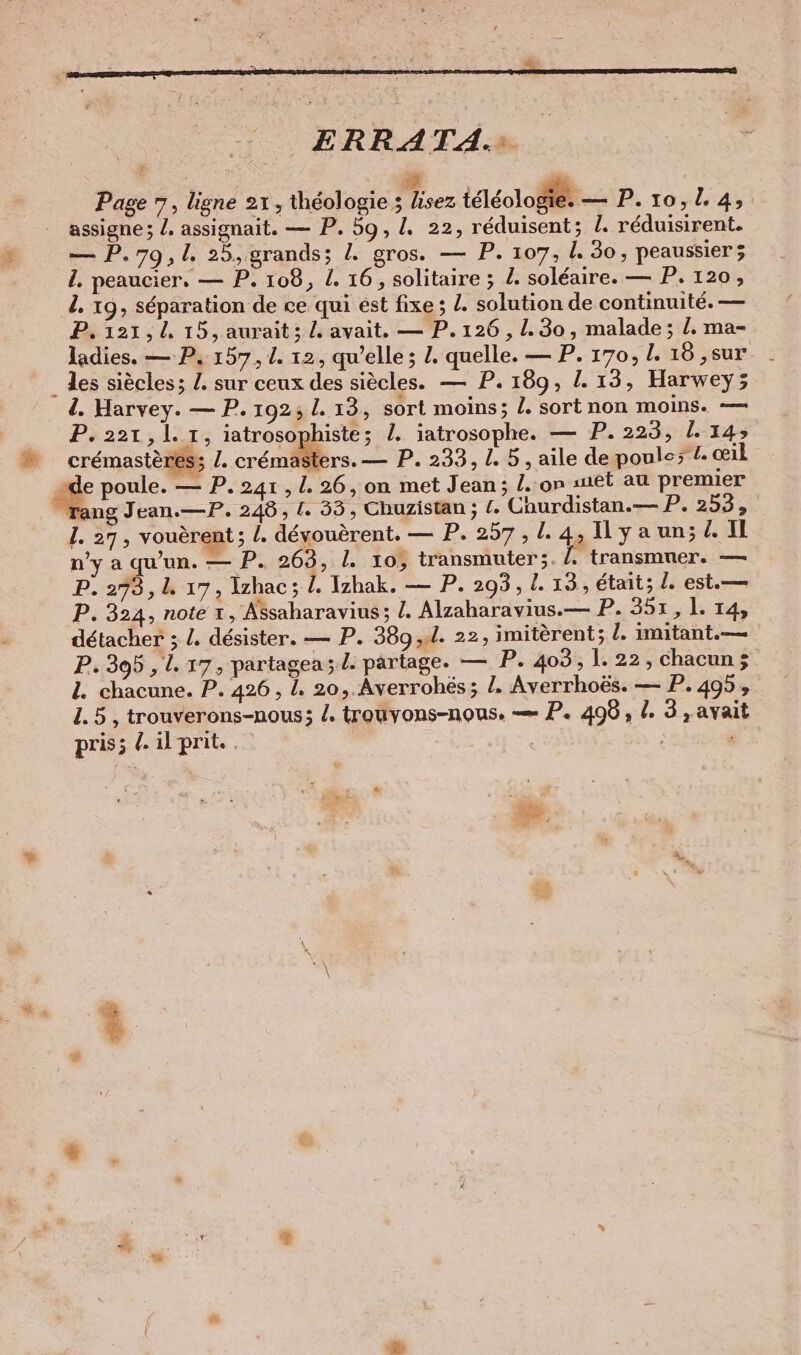 ERRATA.
Page 7, ligne 21, théologie ; lisez téléologie. — P. 10, l. 4,
assigne; l. assignait. — P. 59, l. 22, réduisent; l. réduisirent.
— P. 79, l. 25, grands; l. gros. — P. 107, l. 30, peaussier;
l. peaucier. — P. 108, l. 16, solitaire; l. soléaire. — P. 120,
l. 19, séparation de ce qui est fixe; l. solution de continuité. —
P. 121, l. 15, aurait; l. avait. — P. 126, l. 30, malade; l. ma-
ladies. — P. 157, l. 12, qu'elle; l. quelle. — P. 170, l. 18, sur
les siècles; l. sur ceux des siècles. — P. 189, l. 13, Harwey;
l. Harvey. — P. 192, l. 13, sort moins; l. sort non moins. —
P. 221, l. 1, iatrosophiste; l. iatrosophe. — P. 223, l. 14,
crémastères; l. crémasters. — P. 233, l. 5, aile de poule; l. œil
de poule. — P. 241, l. 26, on met Jean; l. on met au premier
rang Jean.—P. 248, l. 33, Chuzistan; l. Churdistan.— P. 253,
l. 27, vouèrent; l. dévouèrent. — P. 257, l. 4, Il y a un; l. Il
n'y a qu'un. — P. 263, l. 10, transmuter; l. transmuer. —
P. 273, l. 17, Izhac; l. Izhak. — P. 293, l. 13, était; l. est.—
P. 324, note 1, Assaharavius; l. Alzaharavius.— P. 351, l. 14,
détacher; l. désister. — P. 389, l. 22, imitèrent; l. imitant.—
P. 395, l. 17, partagea; l. partage. — P. 403, l. 22, chacun;
l. chacune. P. 426, l. 20, Averrohës; l. Averrhoës. — P. 495,
l. 5, trouverons-nous; l. trouvons-nous. — P. 498, l. 3, avait
pris; l. il prit.